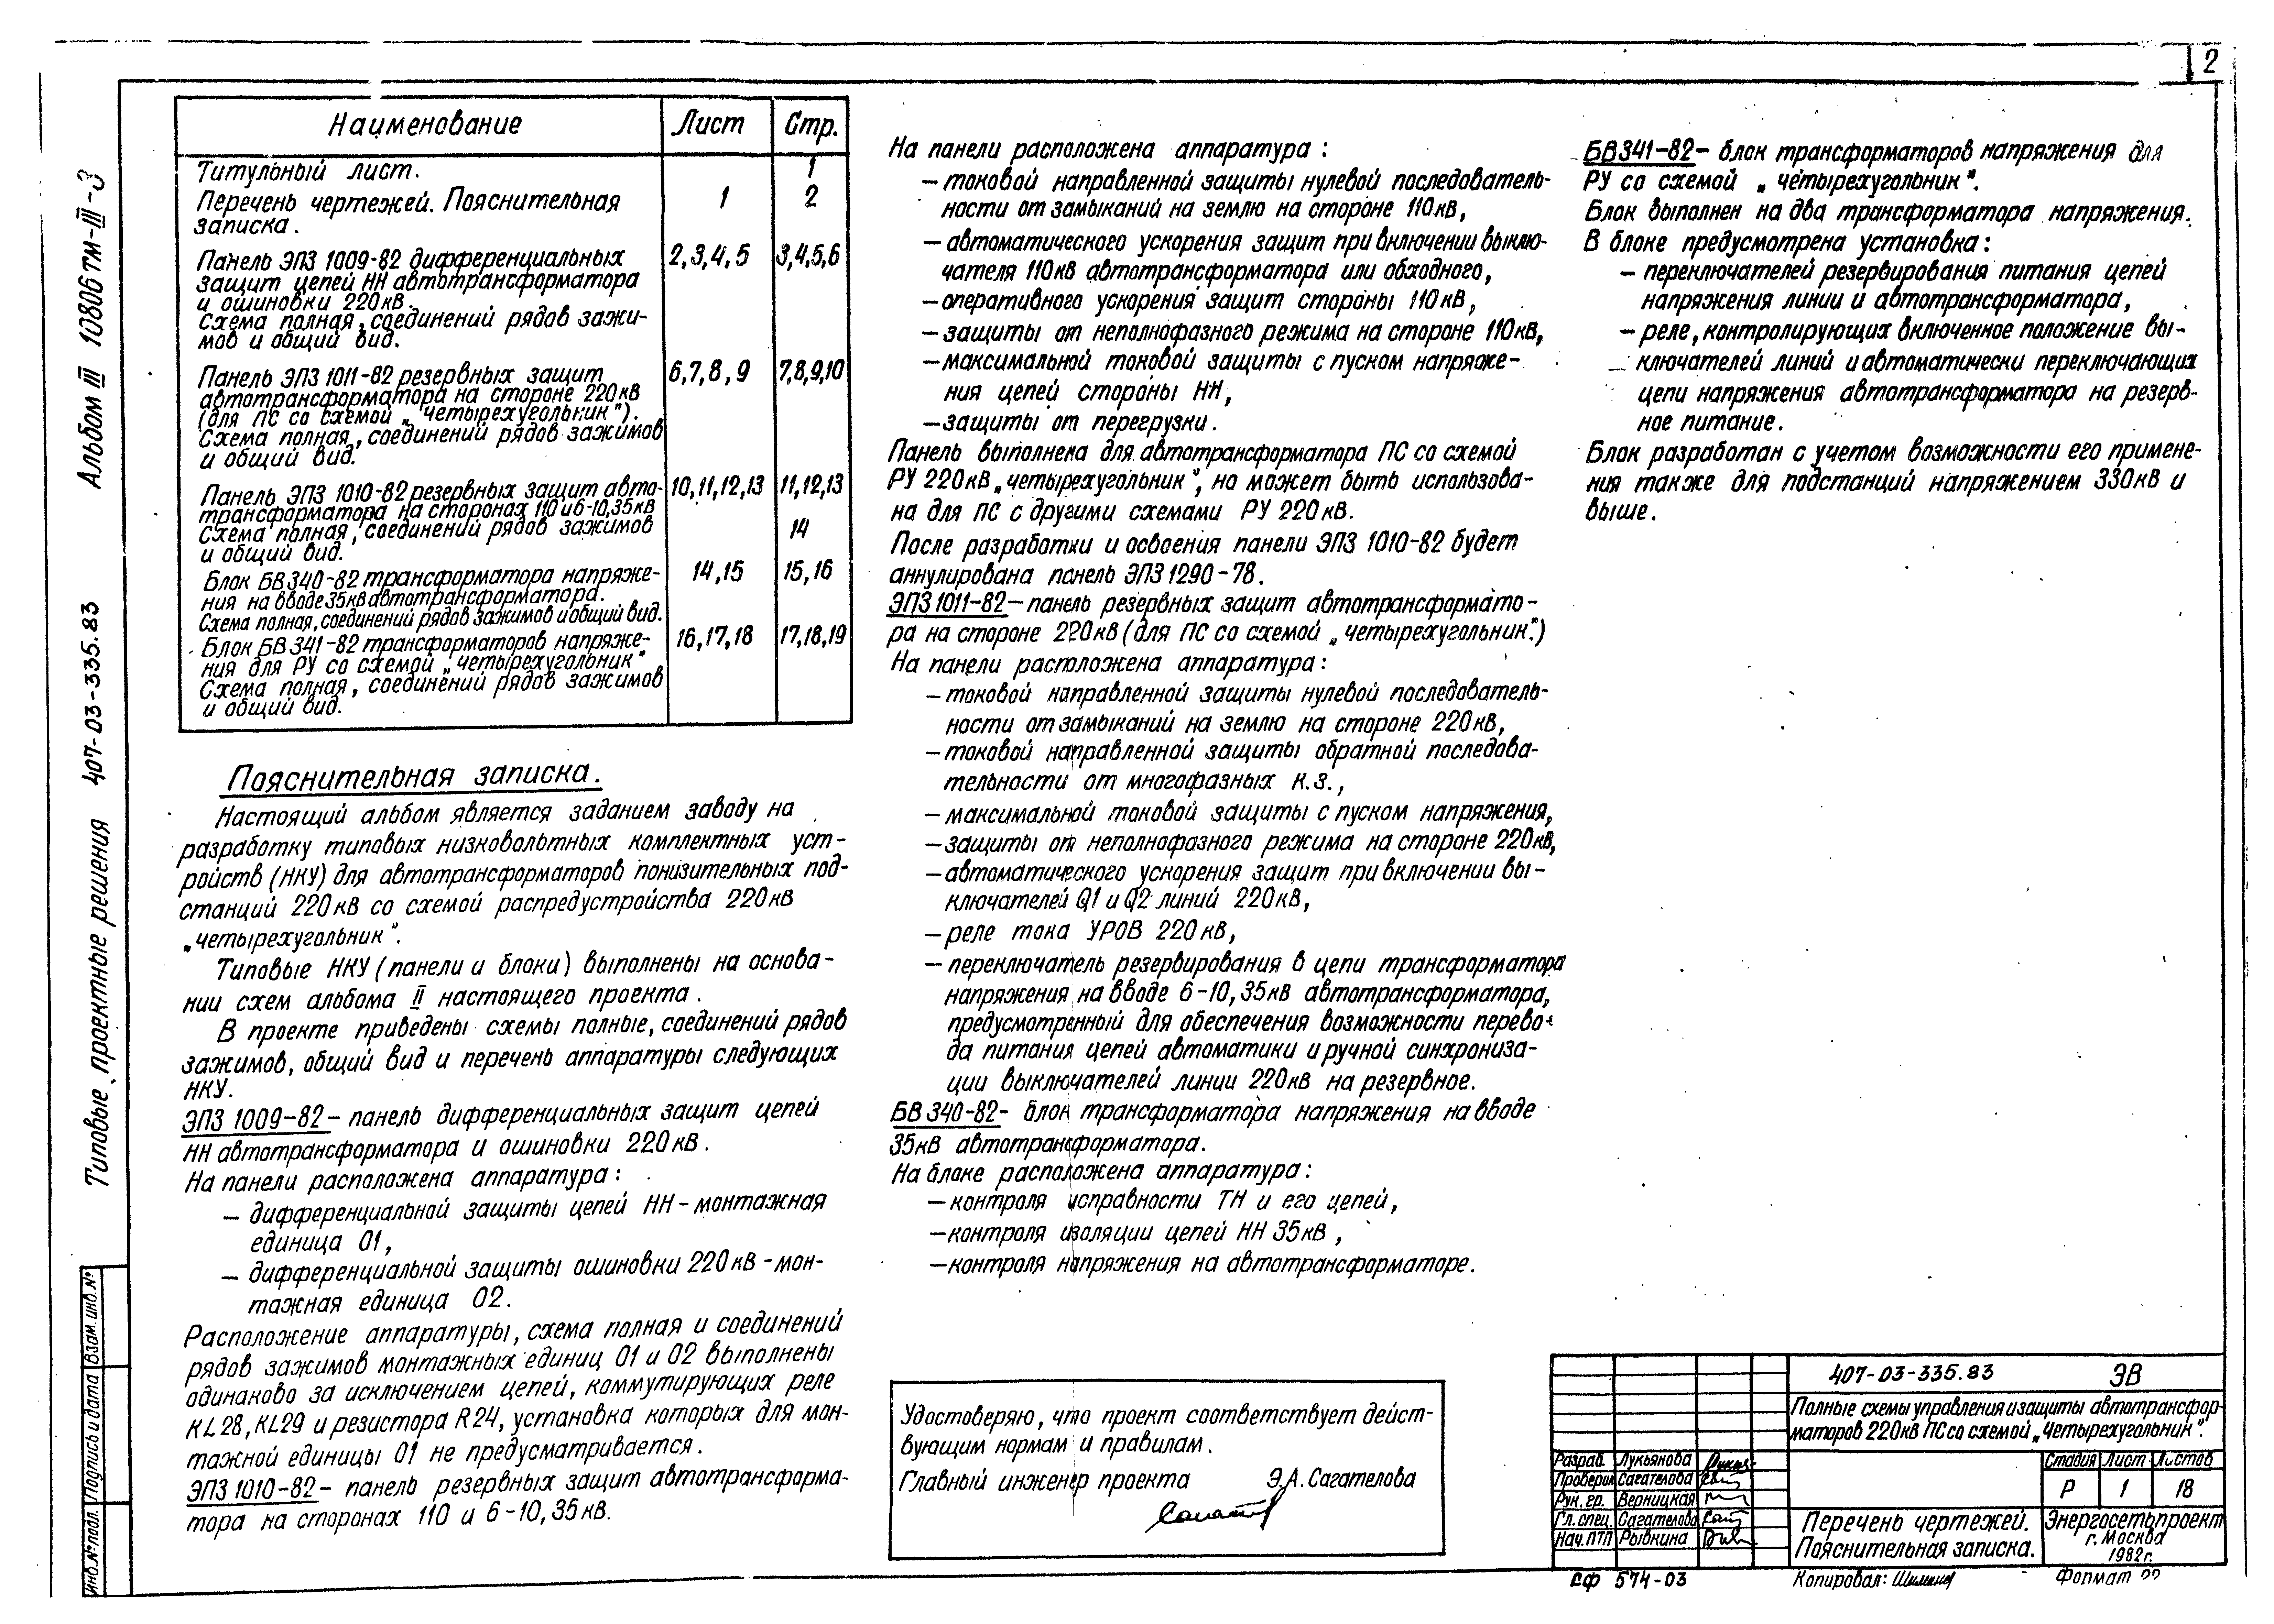 2
Альбом III 10806тм-III-3
Типовые проектные решения 407-03-335.83
Наименование Лист Стр.
Титульный лист. 1
Перечень чертежей. Пояснительная 1 2
записка.
Панель ЭПЗ 1009-82 дифференциальных 2,3,4,5 3,4,5,6
защит цепей НН автотрансформатора
и ошиновки 220кВ.
Схема полная, соединений рядов зажи-
мов и общий вид.
Панель ЭПЗ 1011-82 резервных защит 6,7,8,9 7,8,9,10
автотрансформатора на стороне 220кВ
(для ПС со схемой „четырехугольник").
Схема полная, соединений рядов зажимов
и общий вид.
Панель ЭПЗ 1010-82 резервных защит авто- 10,11,12,13 11,12,13
трансформатора на сторонах 110 и 6-10,35кВ
Схема полная, соединений рядов зажимов 14
и общий вид.
Блок БВ340-82 трансформатора напряже- 14,15 15,16
ния на вводе 35кВ автотрансформатора.
Схема полная, соединений рядов зажимов и общий вид.
Блок БВ 341-82 трансформаторов напряже- 16,17,18 17,18,19
ния для РУ со схемой „четырехугольник"
Схема полная, соединений рядов зажимов
и общий вид.
Пояснительная записка.
Настоящий альбом является заданием заводу на
разработку типовых низковольтных комплектных уст-
ройств (НКУ) для автотрансформаторов понизительных под-
станций 220кВ со схемой распредустройства 220кВ
„четырехугольник".
Типовые НКУ (панели и блоки) выполнены на основа-
нии схем альбома II настоящего проекта.
В проекте приведены схемы полные, соединений рядов
зажимов, общий вид и перечень аппаратуры следующих
НКУ.
ЭПЗ 1009-82 - панель дифференциальных защит цепей
НН автотрансформатора и ошиновки 220кВ.
На панели расположена аппаратура:
- дифференциальной защиты цепей НН - монтажная
единица 01,
- дифференциальной защиты ошиновки 220кВ - мон-
тажная единица 02.
Расположение аппаратуры, схема полная и соединений
рядов зажимов монтажных единиц 01 и 02 выполнены
одинаково за исключением цепей, коммутирующих реле
KL28, KL29 и резистора R24, установка которых для мон-
тажной единицы 01 не предусматривается.
ЭПЗ 1010-82 - панель резервных защит автотрансформа-
тора на сторонах 110 и 6-10, 35кВ.
На панели расположена аппаратура:
- токовой направленной защиты нулевой последователь-
ности от замыканий на землю на стороне 110кВ,
- автоматического ускорения защит при включении выклю-
чателя 110кВ автотрансформатора или обходного,
- оперативного ускорения защит стороны 110кВ,
- защиты от неполнофазного режима на стороне 110кВ,
- максимальной токовой защиты с пуском напряже-
ния цепей стороны НН,
- защиты от перегрузки.
Панель выполнена для автотрансформатора ПС со схемой
РУ 220кВ „четырехугольник", но может быть использова-
на для ПС с другими схемами РУ 220кВ.
После разработки и освоения панели ЭПЗ 1010-82 будет
аннулирована панель ЭПЗ1290-78.
ЭПЗ 1011-82 - панель резервных защит автотрансформато-
ра на стороне 220кВ (для ПС со схемой „четырехугольник".)
На панели расположена аппаратура:
- токовой направленной защиты нулевой последователь-
ности от замыканий на землю на стороне 220кВ,
- токовой направленной защиты обратной последова-
тельности от многофазных к.з.,
- максимальной токовой защиты с пуском напряжения,
- защиты от неполнофазного режима на стороне 220кВ,
- автоматического ускорения защит при включении вы-
ключателей Q1 и Q2 линий 220кВ,
- реле тока УРОВ 220кВ,
- переключатель резервирования в цепи трансформатора
напряжения на вводе 6-10, 35кВ автотрансформатора,
предусмотренный для обеспечения возможности перево-
да питания цепей автоматики и ручной синхрониза-
ции выключателей линии 220кВ на резервное.
БВ 340-82- блок трансформатора напряжения на вводе
35кВ автотрансформатора.
На блоке расположена аппаратура:
- контроля исправности ТН и его цепей,
- контроля изоляции цепей НН 35кВ,
- контроля напряжения на автотрансформаторе.
Удостоверяю, что проект соответствует дейст-
вующим нормам и правилам.
Главный инженер проекта Э.А.Сагателова
БВ341-82- блок трансформаторов напряжения для
РУ со схемой „четырехугольник".
Блок выполнен на два трансформатора напряжения.
В блоке предусмотрена установка:
- переключателей резервирования питания цепей
напряжения линии и автотрансформатора,
- реле, контролирующих включенное положение вы-
ключателей линий и автоматически переключающих
цепи напряжения автотрансформатора на резерв-
ное питание.
Блок разработан с учетом возможности его примене-
ния также для подстанций напряжением 330кВ и
выше.
407-03-335.83 ЭВ
Полные схемы управления и защиты автотрансфор-
маторов 220кВ ПС со схемой „Четырехугольник".
Разраб. Лукьянова
Проверил Сагателова
Рук. гр. Верницкая
Гл. спец. Сагателова
Нач. ПТП Рывкина
Стадия Лист Листов
Р 1 18
Перечень чертежей.
Пояснительная записка.
Энергосетьпроект
г. Москва
1982г.
Инв.№подл. Подпись и дата Взам. инв.№
сф 574-03 Копировал: Формат 22